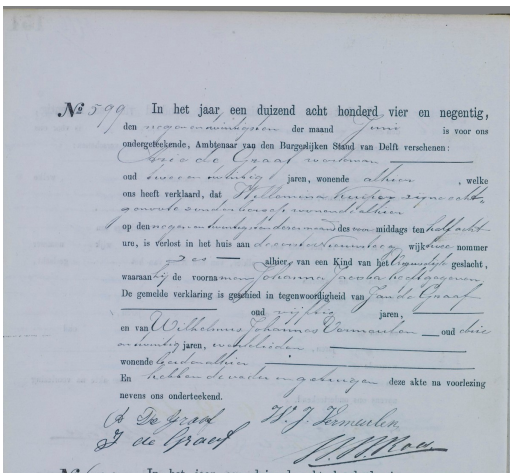 No 599 In het jaar een duizend acht honderd vier en negentig,
den negenentwintigsten der maand Juni is voor ons
ondergeteekende, Ambtenaar van den Burgerlijken Stand van Delft verschenen:
Arie de Graaf werkman
oud tweeentwintig jaren, wonende alhier, welke
ons heeft verklaard, dat Willemina Kuiper zijne echt-
genoote zonder beroep wonende alhier
op den negenentwintigsten dezer maand des voormiddags ten half acht
ure, is verlost in het huis aan wijk twee nommer
zes alhier, van een Kind van het Vrouwelijk geslacht,
waaraan hij de voornamen Johanna Jacoba heeft gegeven
De gemelde verklaring is geschied in tegenwoordigheid van Jan de Graaf
oud vijftig jaren,
en van Wilhelmus Johannes Vermeulen oud drie
en twintig jaren, werklieden
wonende beiden alhier
En hebben de vader en getuigen deze akte na voorlezing
nevens ons onderteekend.
A De Graaf W. J. Vermeulen
J de Graaf